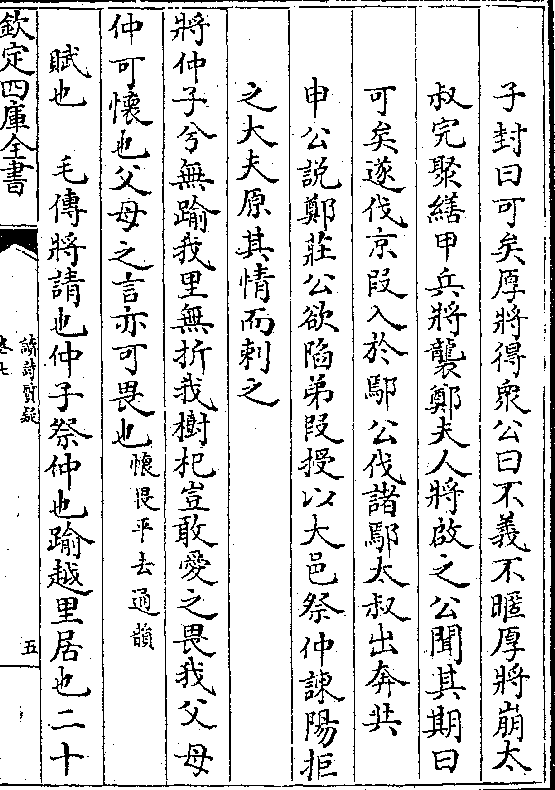 子封曰可矣厚將得衆公曰不義不暱厚將崩太
叔完聚繕甲兵將襲鄭夫人將啟之公聞其期曰
可矣遂伐京叚入於鄢公伐諸鄢太叔出奔共
申公說鄭莊公欲陷弟叚授以大邑祭仲諫陽拒
之大夫原其情而刺之
將仲子兮無踰我里無折我樹杞豈敢愛之畏我父母
仲可懷也父母之言亦可畏也懷畏平去通韻
賦也　毛傳將請也仲子祭仲也踰越里居也二十
欽定四庫全書
讀詩質疑
卷七
五